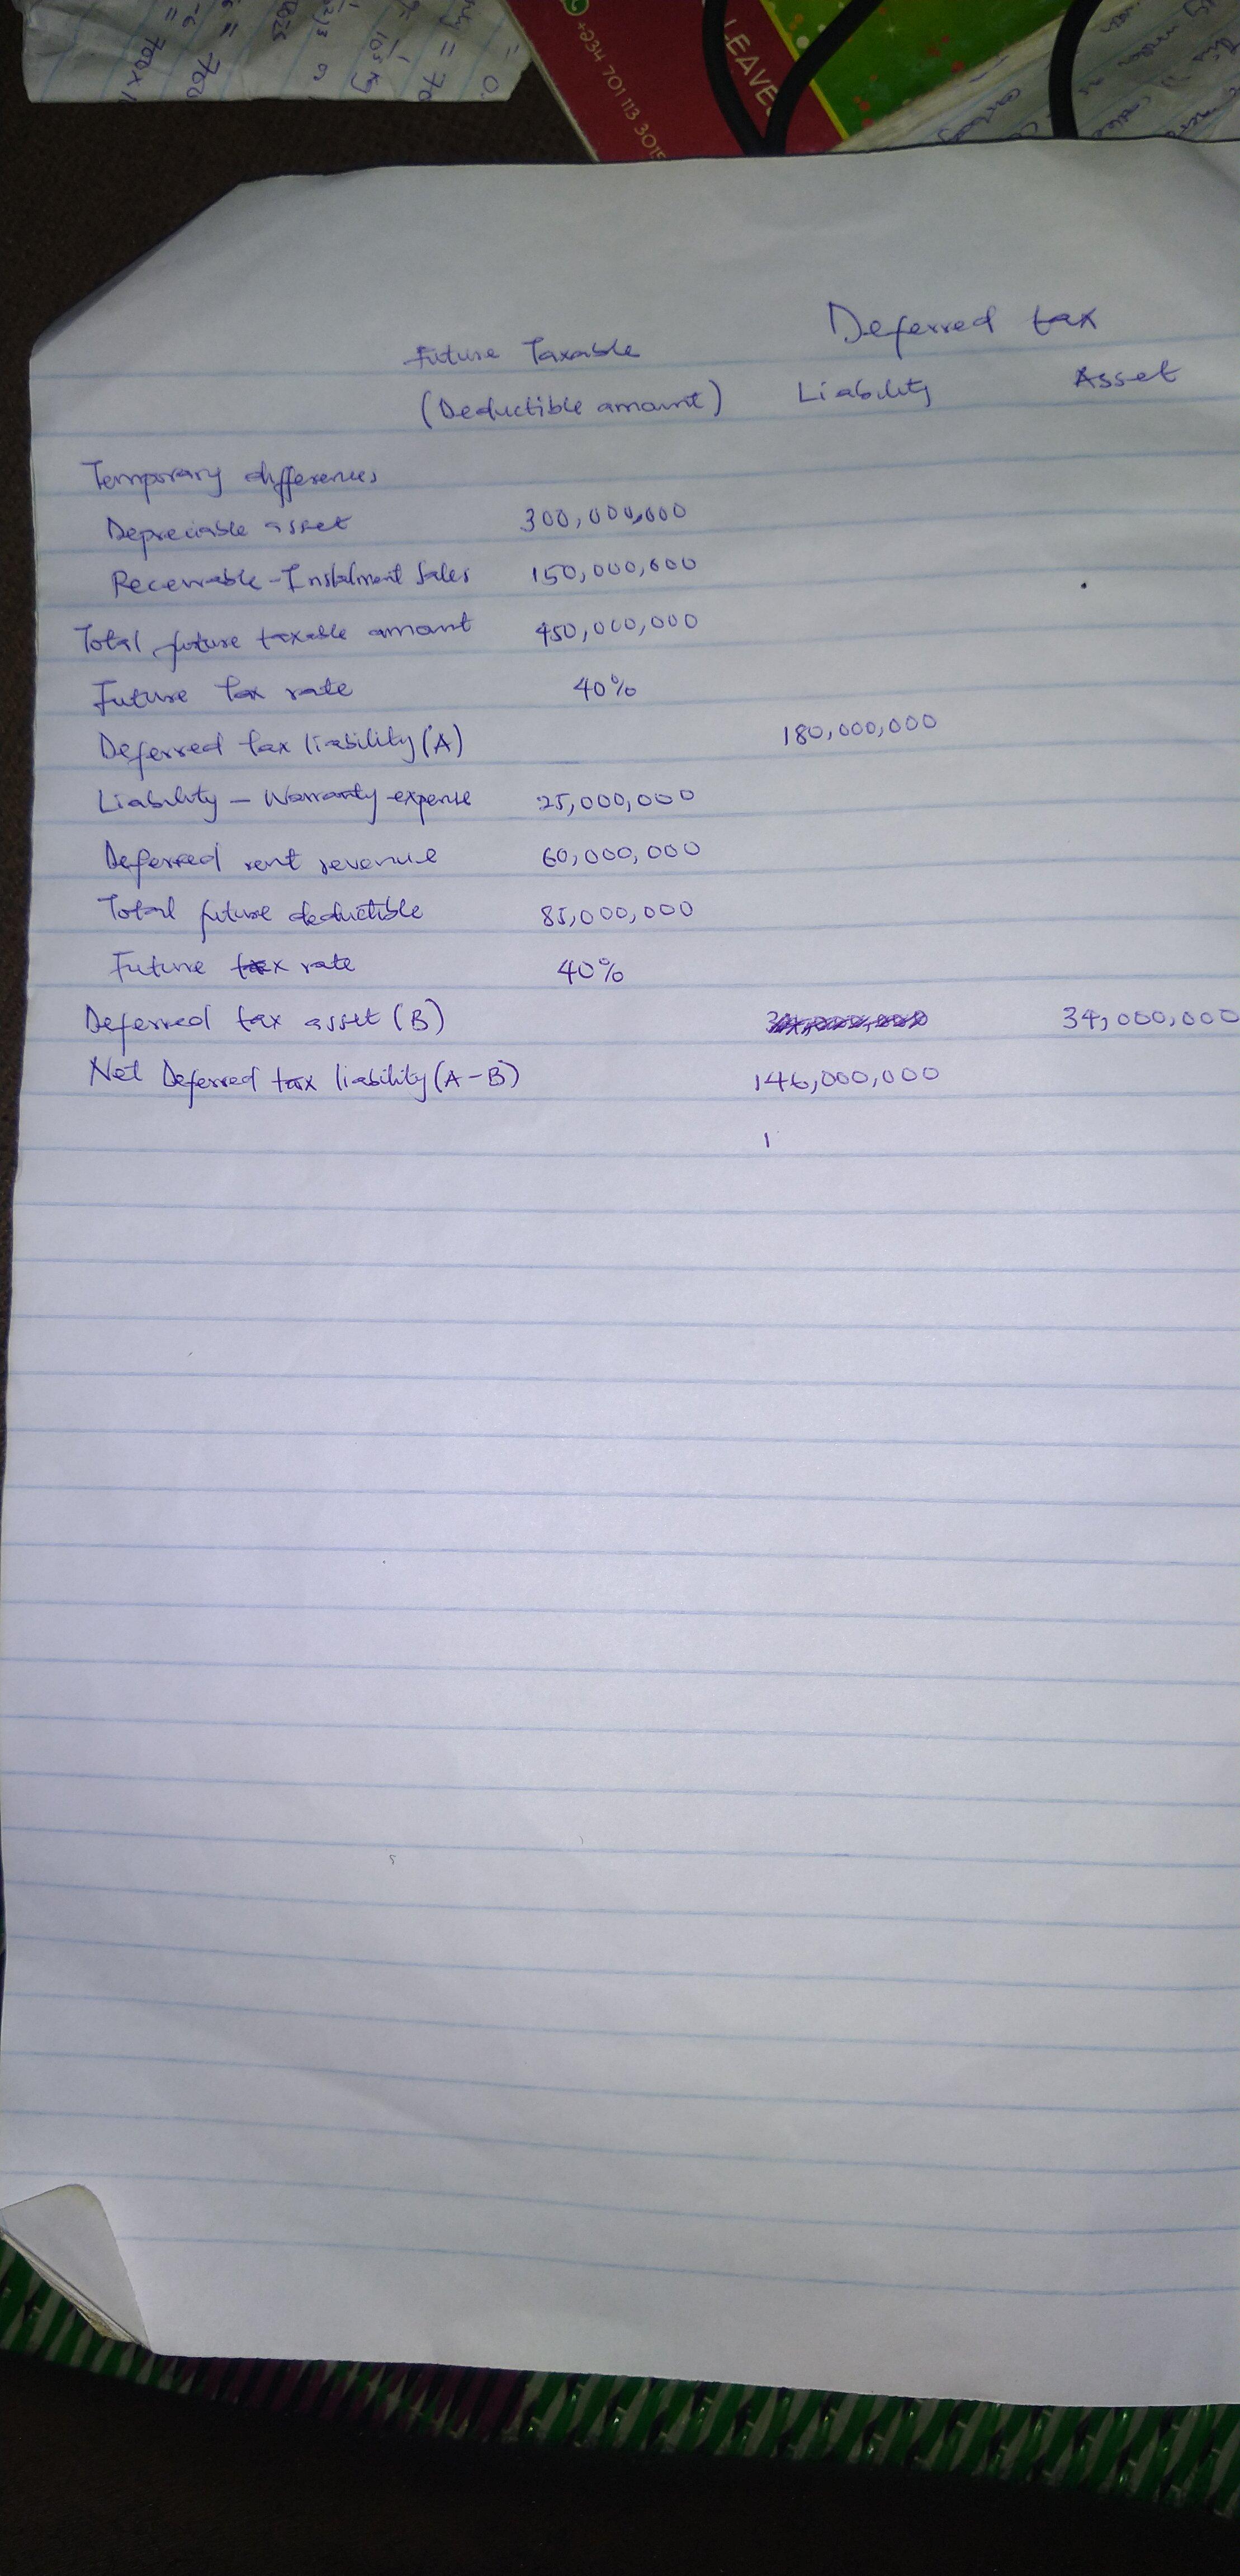 +234 701 113 3015
LEAVE
Deferred tax
Future Taxable
(Deductible amount) Liability Asset
Temporary differences
Depreciable asset 300,000,000
Receivable - Instalment Sales 150,000,000
Total future taxable amount 450,000,000
Future Tax rate 40%
Deferred tax liability (A) 180,000,000
Liability - Warranty expense 25,000,000
Deferred rent revenue 60,000,000
Total future deductible 85,000,000
Future tax rate 40%
Deferred tax asset (B) 34,000,000
Net Deferred tax liability (A-B) 146,000,000